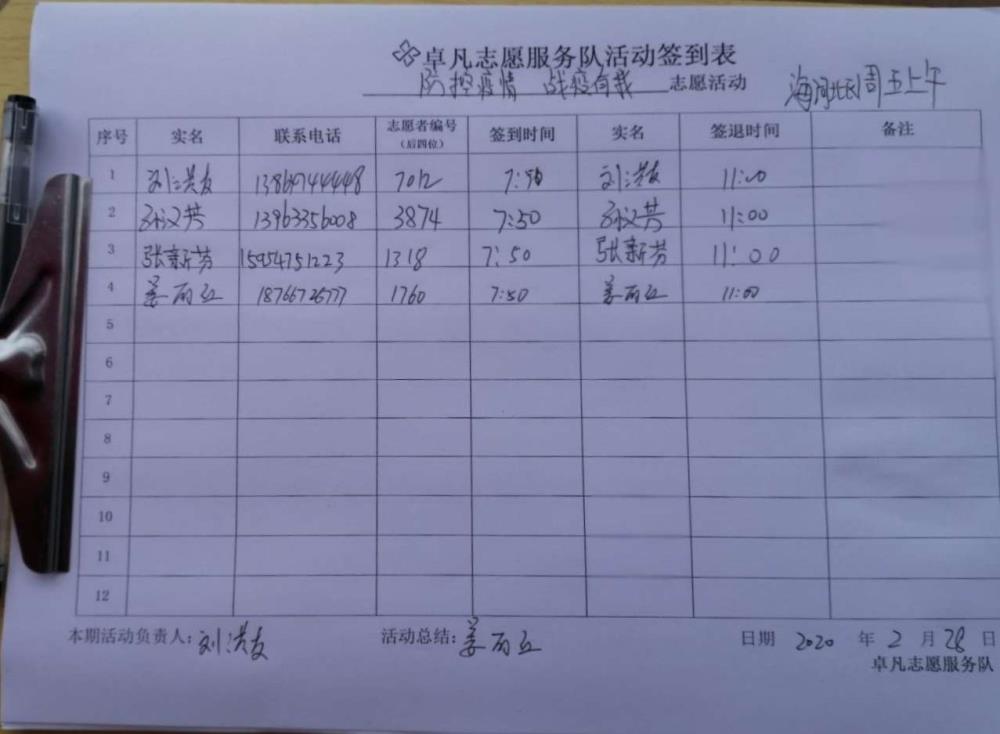 卓凡志愿服务队活动签到表
防控疫情 战疫有我 志愿活动 海河北区周五上午
序号 实名 联系电话 志愿者编号（后四位） 签到时间 实名 签退时间 备注
1 刘洪友 13869744448 7012 7:50 刘洪友 11:00
2 孙汉芳 13963356008 3874 7:50 孙汉芳 11:00
3 张新芳 15954751223 1318 7:50 张新芳 11:00
4 姜丽红 18766726777 1760 7:50 姜丽红 11:00
5
6
7
8
9
10
11
12
本期活动负责人：刘洪友 活动总结：姜丽红 日期 2020 年 2 月 28 日
卓凡志愿服务队